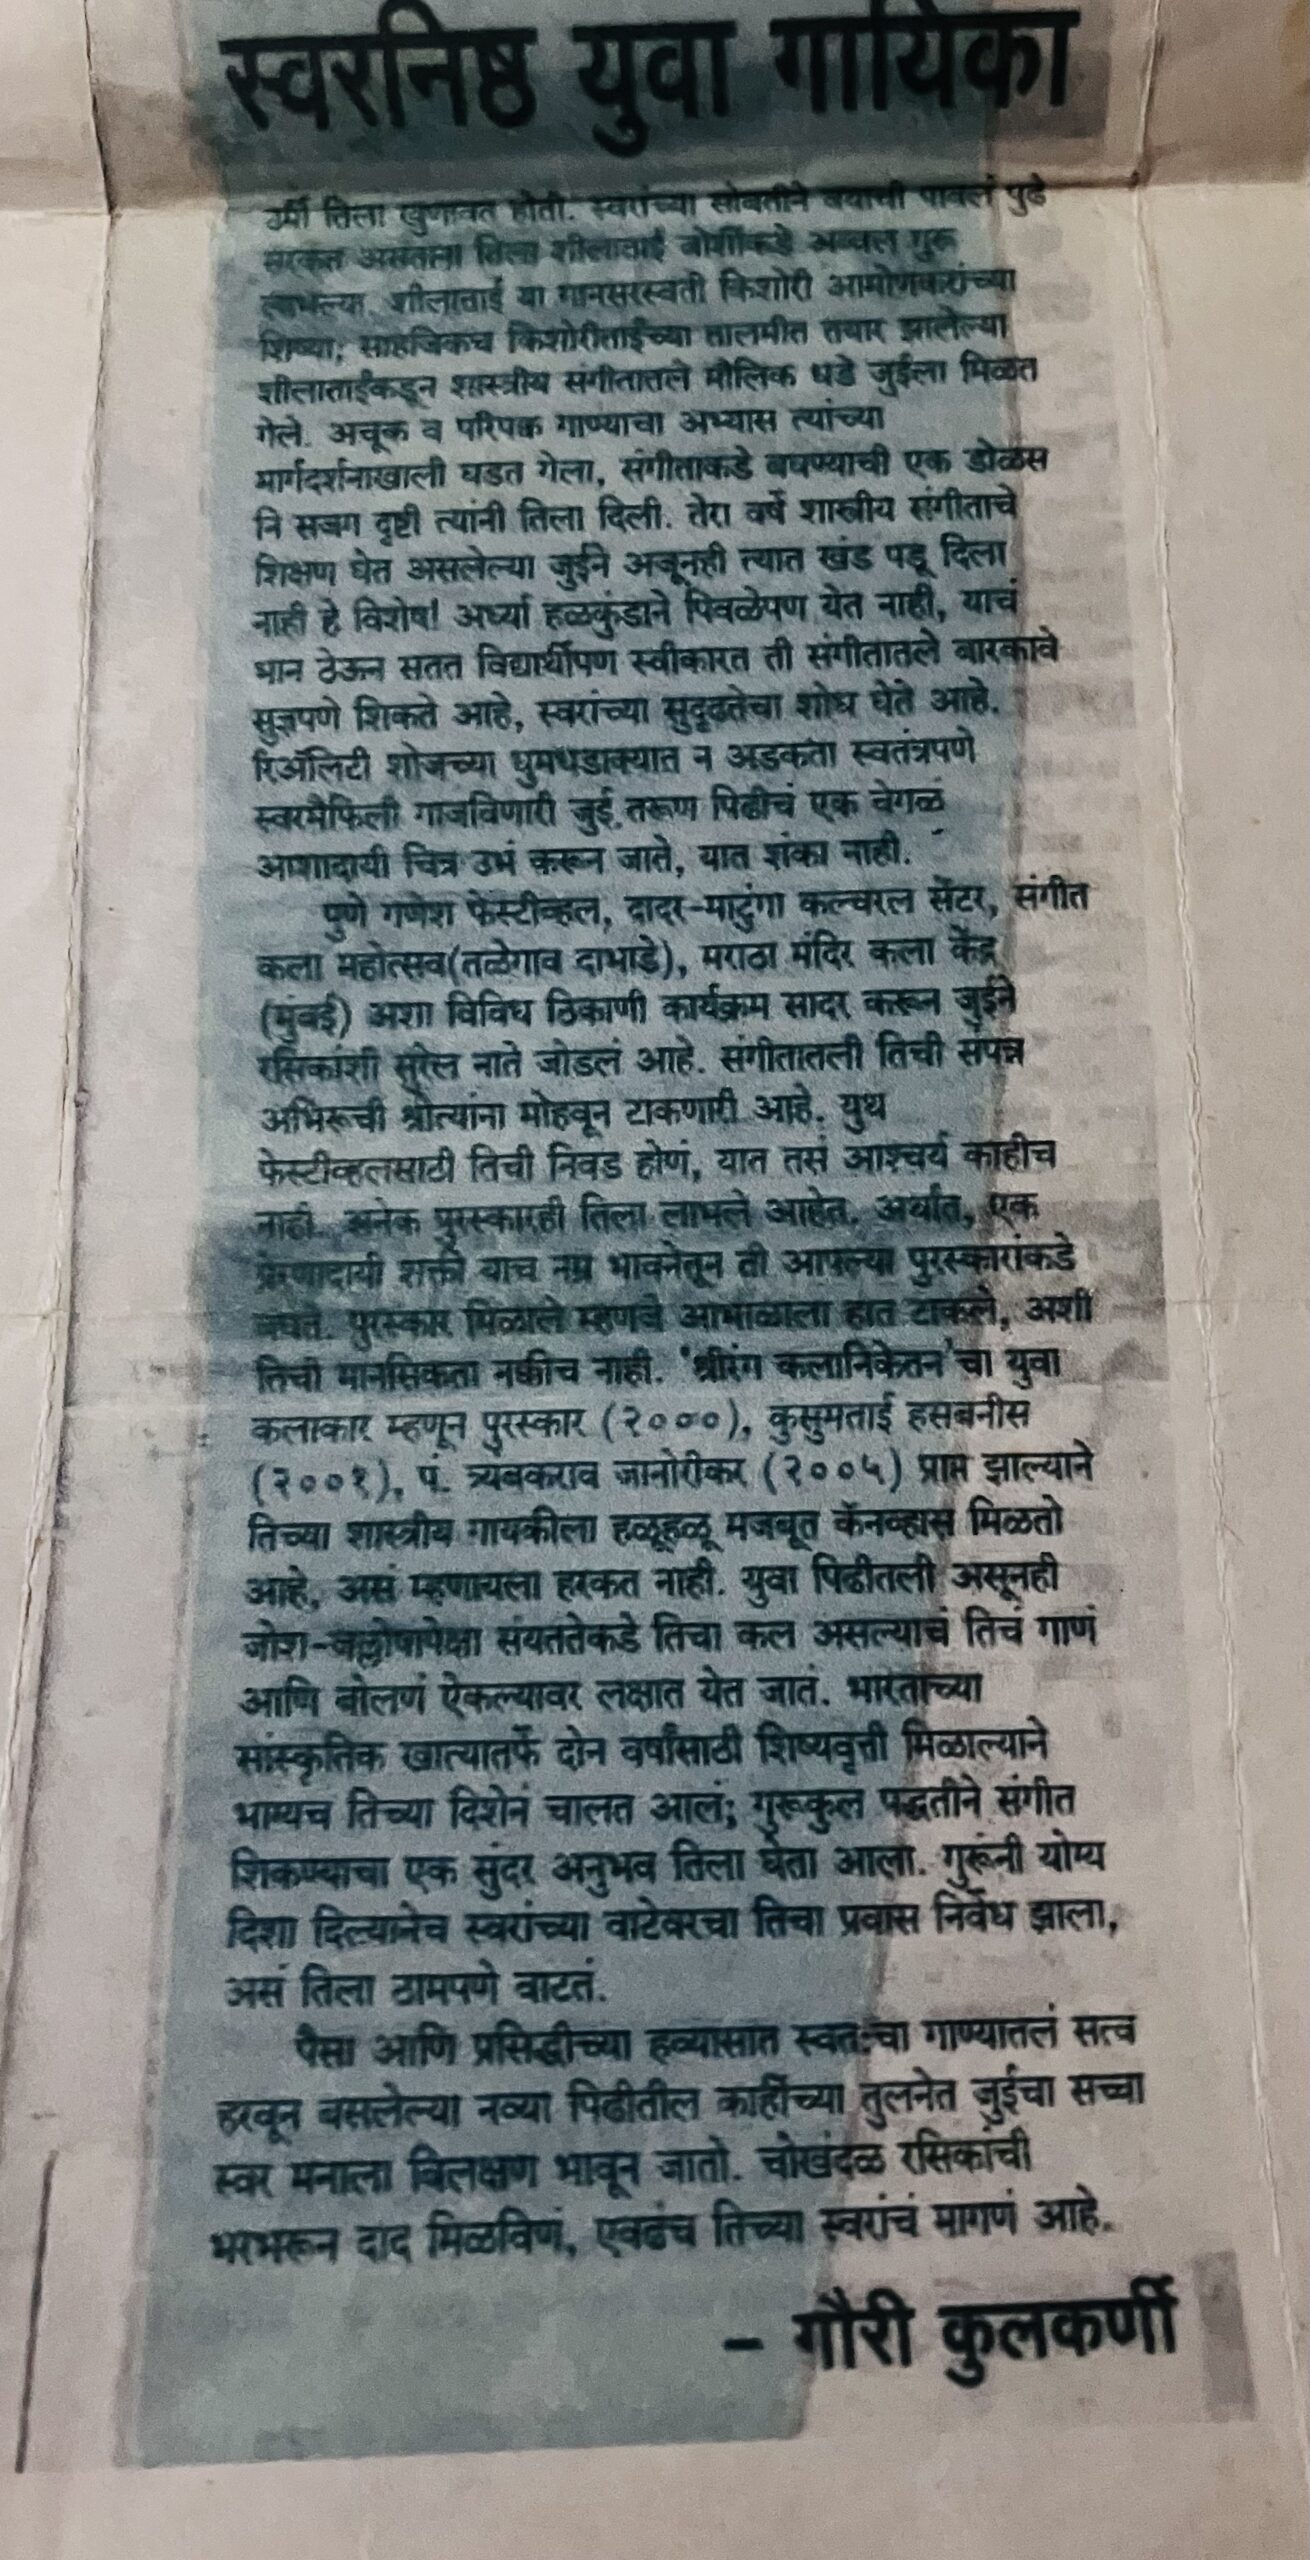 स्वरनिष्ठ युवा गायिका
उर्मी तिला खुणावत होती. स्वरांच्या सोबतीने वयाची पावलं पुढे
सरकत असताना तिला शीलाताई जोशींकडे अव्वल गुरू
लाभल्या. शीलाताई या गानसरस्वती किशोरी आमोणकरांच्या
शिष्या; साहजिकच किशोरीताईंच्या तालमीत तयार झालेल्या
शीलाताईंकडून शास्त्रीय संगीतातले मौलिक धडे जुईला मिळत
गेले. अचूक व परिपक्व गाण्याचा अभ्यास त्यांच्या
मार्गदर्शनाखाली घडत गेला, संगीताकडे बघण्याची एक डोळस
नि सजग दृष्टी त्यांनी तिला दिली. तेरा वर्षे शास्त्रीय संगीताचे
शिक्षण घेत असलेल्या जुईने अजूनही त्यात खंड पडू दिला
नाही हे विशेष! अर्ध्या हळकुंडाने पिवळेपण येत नाही, याचं
भान ठेऊन सतत विद्यार्थीपण स्वीकारत ती संगीतातले बारकावे
सुज्ञपणे शिकते आहे, स्वरांच्या सुदृढतेचा शोध घेते आहे.
रिॲलिटी शोजच्या धुमधडाक्यात न अडकता स्वतंत्रपणे
स्वरमैफिली गाजविणारी जुई तरूण पिढीचं एक वेगळं
आशादायी चित्र उभं करून जाते, यात शंका नाही.
पुणे गणेश फेस्टीव्हल, दादर-माटुंगा कल्चरल सेंटर, संगीत
कला महोत्सव(तळेगाव दाभाडे), मराठा मंदिर कला केंद्र
(मुंबई) अशा विविध ठिकाणी कार्यक्रम सादर करून जुईने
रसिकांशी सुरेल नाते जोडलं आहे. संगीतातली तिची संपन्न
अभिरूची श्रोत्यांना मोहवून टाकणारी आहे. युथ
फेस्टीव्हलसाठी तिची निवड होणं, यात तसं आश्चर्य काहीच
नाही. अनेक पुरस्कारही तिला लाभले आहेत. अर्थात, एक
प्रेरणादायी शक्ती याच नम्र भावनेतून ती आपल्या पुरस्कारांकडे
बघते. पुरस्कार मिळाले म्हणजे आभाळाला हात टाकले, अशी
तिची मानसिकता नक्कीच नाही. 'श्रीरंग कलानिकेतन'चा युवा
कलाकार म्हणून पुरस्कार (२०००), कुसुमताई हसबनीस
(२००१), पं. त्र्यंबकराव जानोरीकर (२००५) प्राप्त झाल्याने
तिच्या शास्त्रीय गायकीला हळूहळू मजबूत कॅनव्हास मिळतो
आहे, असं म्हणायला हरकत नाही. युवा पिढीतली असूनही
जोश-जल्लोषापेक्षा संयततेकडे तिचा कल असल्याचं तिचं गाणं
आणि बोलणं ऐकल्यावर लक्षात येत जातं. भारताच्या
सांस्कृतिक खात्यातर्फे दोन वर्षांसाठी शिष्यवृत्ती मिळाल्याने
भाग्यच तिच्या दिशेनं चालत आलं; गुरूकुल पद्धतीने संगीत
शिकण्याचा एक सुंदर अनुभव तिला घेता आला. गुरूंनी योग्य
दिशा दिल्यानेच स्वरांच्या वाटेवरचा तिचा प्रवास निर्वेध झाला,
असं तिला ठामपणे वाटतं.
पैसा आणि प्रसिद्धीच्या हव्यासात स्वतःचा गाण्यातलं सत्व
हरवून बसलेल्या नव्या पिढीतील काहींच्या तुलनेत जुईचा सच्चा
स्वर मनाला विलक्षण भावून जातो. चोखंदळ रसिकांची
भरभरून दाद मिळविणं, एवढंच तिच्या स्वरांचं मागणं आहे.
- गौरी कुलकर्णी